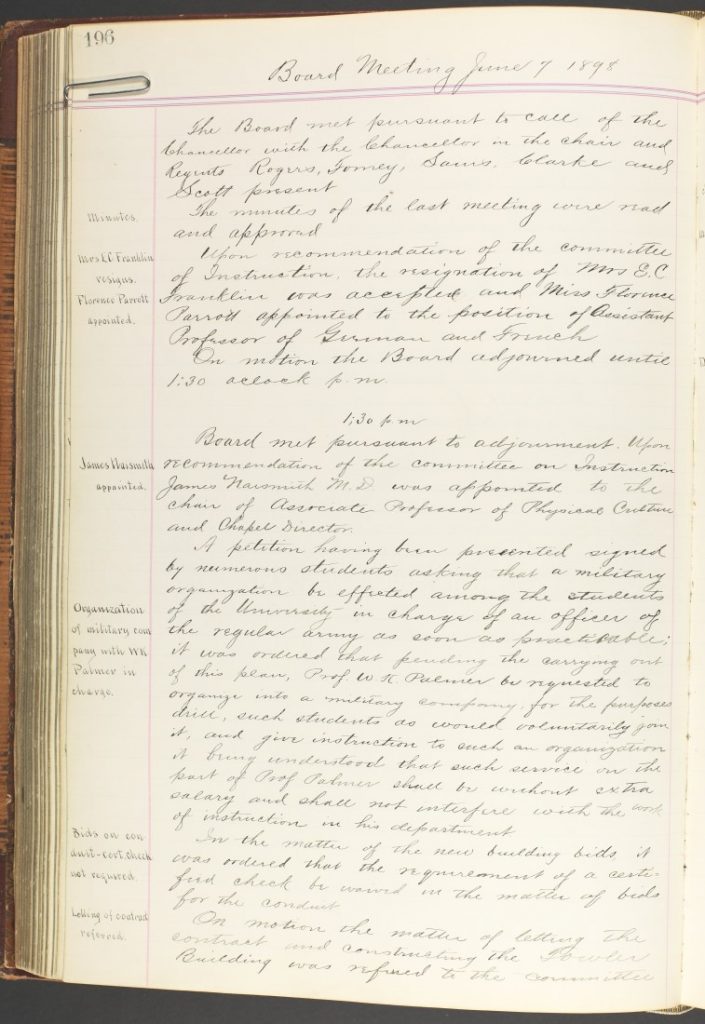 196
Board Meeting June 7 1898
The Board met pursuant to call of the
Chancellor with the Chancellor in the chair and
Regents Rogers, Forney, Sams, Clarke and
Scott present
Minutes.
The minutes of the last meeting were read
and approved
Mrs E.C. Franklin
resigns.
Florence Parrott
appointed.
Upon recommendation of the committee
of Instruction, the resignation of Mrs E.C
Franklin was accepted and Miss Florence
Parrott appointed to the position of Assistant
Professor of German and French
On motion the Board adjourned until
1:30 oclock p.m.
1;30 p m
James Naismith
appointed.
Board met pursuant to adjournment. Upon
recommendation of the committee on Instruction
James Naismith M.D. was appointed to the
chair of Associate Professor of Physical Culture
and Chapel Director.
Organization
of military com
pany with WK
Palmer in
charge.
A petition having been presented signed
by numerous students asking that a military
organization be effected among the students
of the University in charge of an officer of
the regular army as soon as practicable;
it was ordered that pending the carrying out
of this plan, Prof. W K. Palmer be requested to
organize into a military company, for the purposes
drill, such students as would voluntarily join
it, and give instruction to such an organization
it being understood that such service on the
part of Prof Palmer shall be without extra
salary and shall not interfere with the work
of instruction in his department
Bids on con
duit-cert. check
not required.
In the matter of the new building bids it
was ordered that the requirement of a certi-
fied check be waived in the matter of bids
for the conduit
Letting of contract
referred.
On motion the matter of letting the
contract and constructing the Fowler
Building was refered to the committee